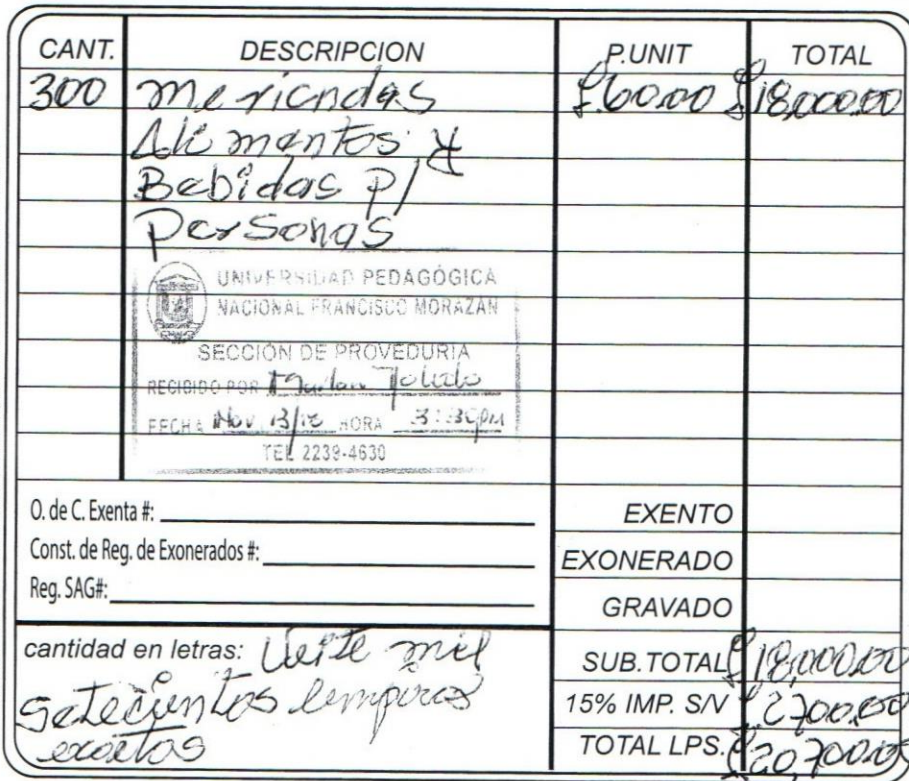 CANT. DESCRIPCION P.UNIT TOTAL
300 meriendas L.60.00 L18,000.00
Alimentos y
Bebidas p/
Personas
UNIVERSIDAD PEDAGÓGICA
NACIONAL FRANCISCO MORAZAN
SECCIÓN DE PROVEDURIA
RECIBIDO POR Toledo
FECHA Nov. 13/18 HORA 3:30pm
TEL 2239-4630
O. de C. Exenta #:
Const. de Reg. de Exonerados #:
Reg. SAG#:
EXENTO
EXONERADO
GRAVADO
cantidad en letras: Veite mil
setecientos lempiras
exactos
SUB.TOTAL L18,000.00
15% IMP. S/V L.2,700.00
TOTAL LPS. L20,700.00